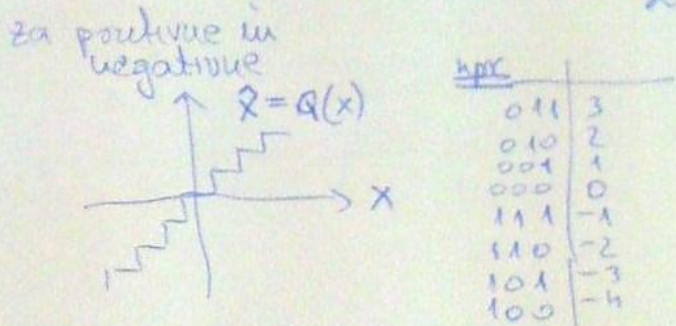 za pozitivne in
negativne
x̂ = Q(x)
x
npr.
011 3
010 2
001 1
000 0
111 -1
110 -2
101 -3
100 -4